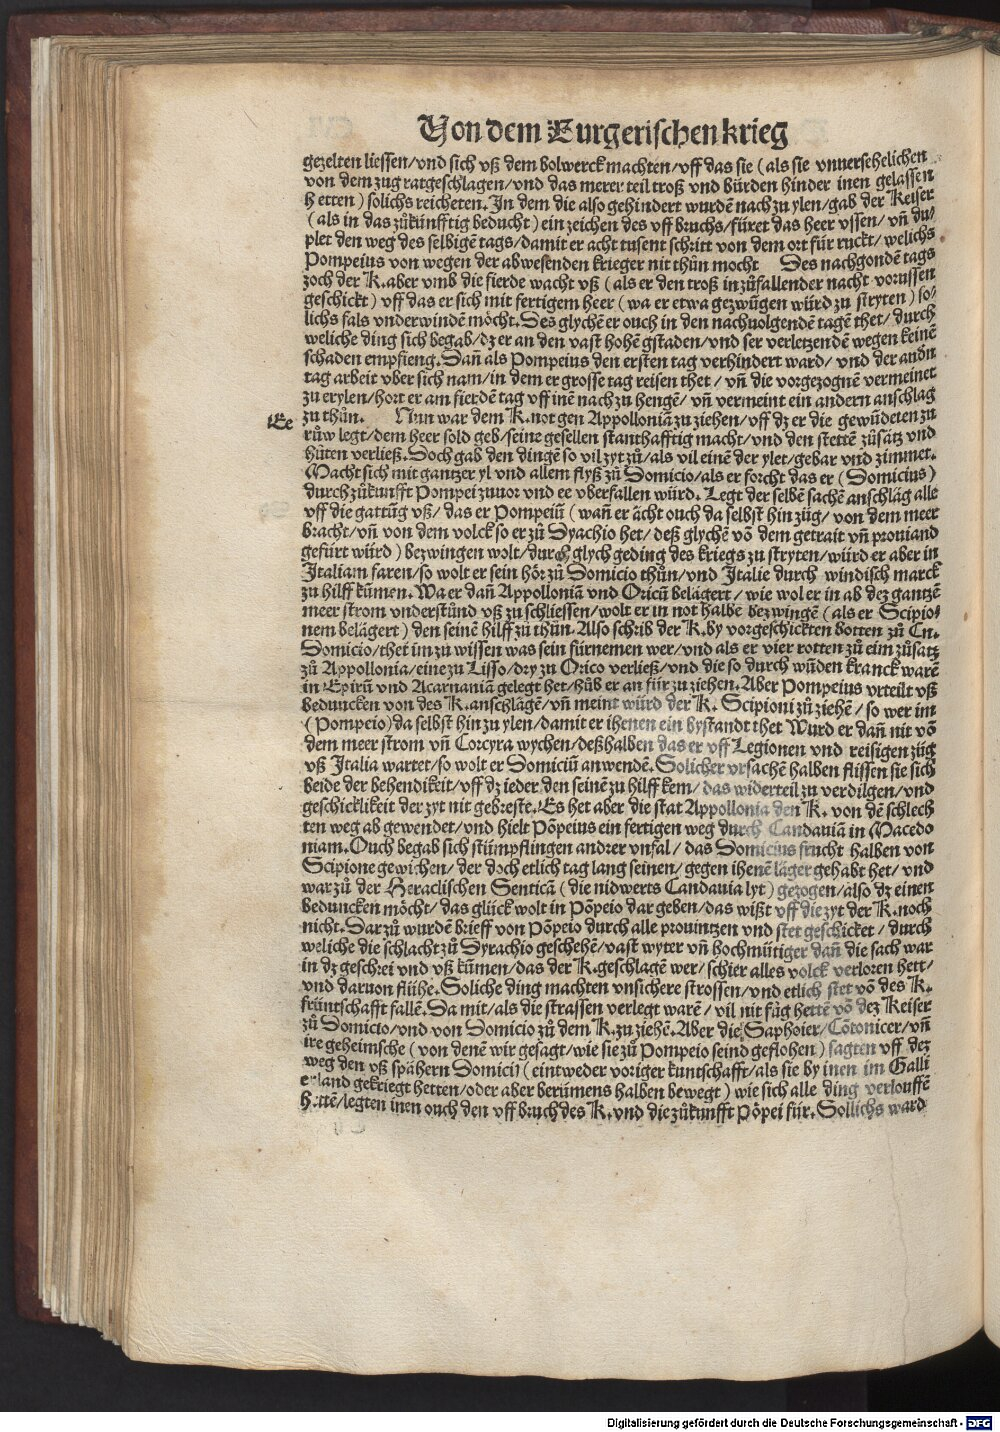 Von dem Burgerischen krieg
gezelten liessen/vnd sich vß dem bolwerck machten/vff das sie (als sie vnuersehelichen
von dem zug ratgeschlagen/vnd das merer teil troß vnd bürden hinder inen gelassen
hetten) solichs reicheten. In dem die also gehindert wurdē nach zu ylen/gab der Keiser
(als in das zůkünfftig beducht) ein zeichen des vff bruchs/füret das heer vssen/vñ du⸗
plet den weg des selbigē tags/damit er acht tusent schritt von dem ort für ruckt/welichs
Pompeius von wegen der abwesenden krieger nit thůn mocht Des nachgondē tags
zoch der K. aber vmb die fierde wacht vß (als er den troß in zůfallender nacht vorussen
geschickt) vff das er sich mit fertigem heer (wa er etwa gezwūgen würd zu stryten) so⸗
lichs fals vnderwindē möcht. Des glychē er ouch in den nachuolgendē tagē thet/durch
weliche ding sich begab/dz er an den vast hohē gstaden/vnd ser verletzendē wegen keinē
schaden empfieng. Dañ als Pompeius den ersten tag verhindert ward/vnd der andn
tag arbeit vber sich nam/in dem er grosse tag reisen thet/vñ die vorgezognē vermeinet
zu erylen/hort er am fierdē tag vff inē nach zu hengē/vñ vermeint ein andern anschlag
Ee zu thůn. Nun war dem K. not gen Appolloniā zu ziehen/vff dz er die gewūdeten zu
růw legt/dem heer sold geb/seine gesellen stanthafftig macht/vnd den stettē zůsatz vnd
hůten verließ. Doch gab den dingē so vil zyt zů/als vil einē der ylet/gebar vnd zimmet.
Macht sich mit gantzer yl vnd allem flyß zů Domicio/als er forcht das er (Domicius)
durch zůkunfft Pompei zuuor vnd ee vberfallen würd. Legt der selbē sachē anschläg alle
vff die gattūg vß/das er Pompeiū (wañ er ächt ouch da selbst hin züg/von dem meer
bracht/vñ von dem volck so er zů Dyachio het/deß glychē võ dem getrait vñ prouiand
gefürt würd) bezwingen wolt/durch glych geding des kriegs zu stryten/würd er aber in
Italiam faren/so wolt er sein hör zů Domicio thůn/vnd Italie durch windisch marck
zu hilff kūmen. Wa er dañ Appolloniā vnd Oricū belägert/wie wol er in ab dez gantzē
meer strom vnderstünd vß zu schliessen/wolt er in not halbē bezwingē (als er Scipio⸗
nem belägert) den seinē hilff zu thůn. Also schrib der K. by vorgeschickten botten zů Cn.
Domicio/thet im zu wissen was sein fürnemen wer/vnd als er vier rotten zů eim zůsatz
zů Appollonia/eine zu Lisso/dry zu Orico verließ/vnd die so durch wūden kranck warē
in Epirū vnd Acarnaniā gelegt het/hůb er an für zu ziehen. Aber Pompeius vrteilt vß
beduncken von des K. anschlägē/vñ meint würd der K. Scipioni zů ziehē/so wer im
(Pompeio) da selbst hin zu ylen/damit er ihenen ein bystandt thet Wurd er dañ nit võ
dem meer strom vñ Corcyra wychen/deßhalben das er vff Legionen vnd reisigen züg
vß Italia wartet/so wolt er Domiciū anwendē. Solicher vrsachē halben flissen sie sich
beide der behendikeit/vff dz ieder den seinē zu hilff kem/das widerteil zu verdilgen/vnd
geschicklikeit der zyt nit gebreste. Es het aber die stat Appollonia den K. von dē schlech
ten weg ab gewendet/vnd hielt Põpeius ein fertigen weg durch Candauiā in Macedo
niam. Ouch begab sich stümpflingen andrer vnfal/das Domicius frucht halben von
Scipione gewichen/der doch etlich tag lang seinen/gegen ihenē läger gehabt het/vnd
war zů der Heraclischen Senticā (die nidwerts Candauia lyt) gezogen/also dz einen
beduncken möcht/das glück wolt in Põpeio dar geben/das wißt vff die zyt der K. noch
nicht. Dar zů wurdē brieff von Põpeio durch alle prouintzen vnd stet geschicket/durch
weliche die schlacht zů Dyrachio geschehē/vast wyter vñ hochmütiger dañ die sach war
in dz geschrei vnd vß kūmen/das der K. geschlagē wer/schier alles volck verloren hett/
vnd daruon flühe. Soliche ding machten vnsichere strossen/vnd etlich stet võ des K.
früntschafft fallē. Da mit/als die strassen verlegt warē/vil nit fůg hettē võ dez Keiser
zů Domicio/vnd von Domicio zů dem K. zu ziehē. Aber die Saphoier/Cõtonicer/vñ
ire geheimsche (von denē wir gesagt/wie sie zů Pompeio seind geflohen) sagten vff dez
weg den vß spähern Domicij (eintweder voriger kuntschafft/als sie by inen im Galli
erland gekriegt hetten/oder aber berümens halben bewegt) wie sich alle ding verlouffē
hettē/legten inen ouch den vff bruch des K. vnd die zůkunfft Põpei für. Sollichs ward
Digitalisierung gefördert durch die Deutsche Forschungsgemeinschaft - DFG